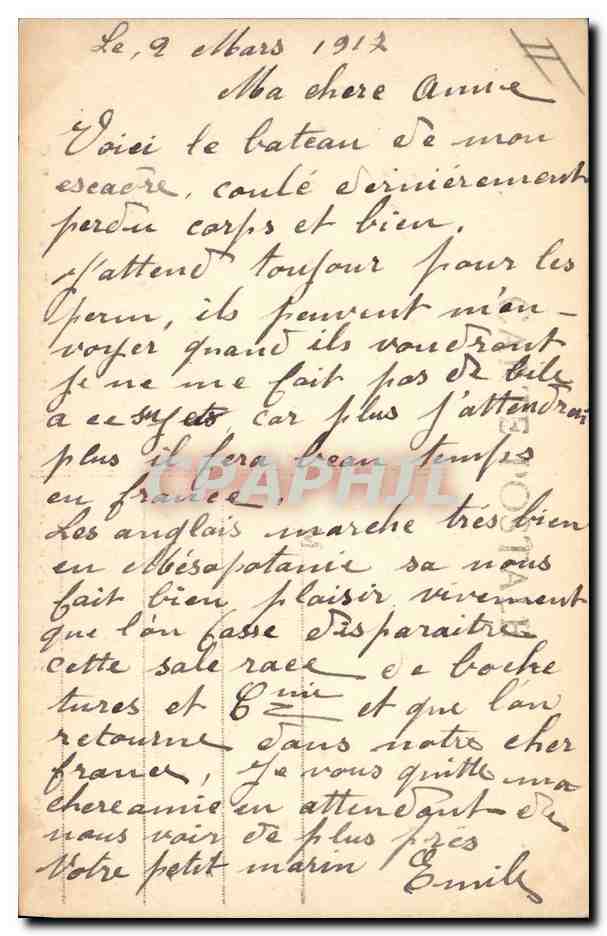 Le, 9 Mars 1917
II
Ma chere Amie
Voici le bateau de mon
escadre, coulé dernièrement
perdu corps et bien.
J'attend toujour pour les
perm, ils peuvent m'en-
voyer quand ils voudront
je ne me fait pas de bile
a ce sujets, car plus j'attendrai
plus il fera beau temps
en france.
Les anglais marche très bien
en Mésopotanie sa nous
fait bien plaisir vivement
que l'on fasse disparaitre
cette sale race de boche
tures et Cnie et que l'on
retourne dans notre cher
france, Je vous quitte ma
chere amie en attendant de
vous voir de plus près
Votre petit marin Emile
CARTE POSTALE
CPAPHIL